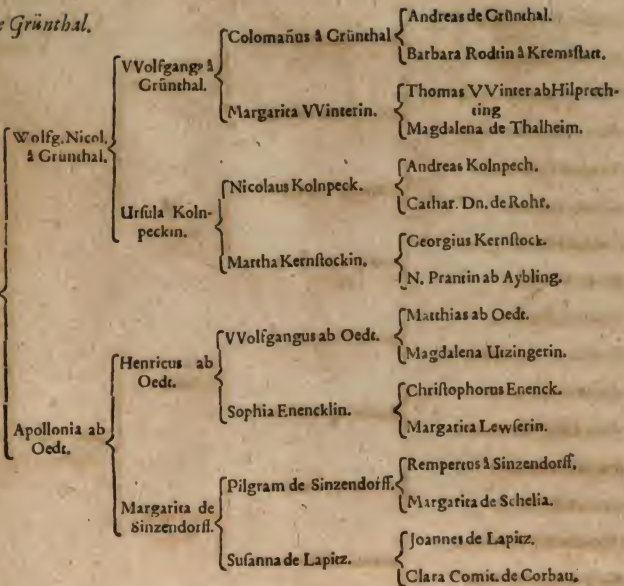 Grünthal.
Wolfg. Nicol.
â Grünthal.
Apollonia ab
Oedt.
VVolfgangꝰ â
Grünthal.
Urſula Koln-
peckin.
Henricus ab
Oedt.
Margarita de
Sinzendorff.
Colomañus â Grünthal
Margarita VVinterin.
Nicolaus Kolnpeck.
Martha Kernſtockin.
VVolfgangus ab Oedt.
Sophia Enencklin.
Pilgram de Sinzendorff.
Suſanna de Lapitz.
Andreas de Grünthal.
Barbara Rodtin â Kremsſtatt.
Thomas VVinter ab Hilprech-
ting
Magdalena de Thalheim.
Andreas Kolnpech.
Cathar. Dn. de Rohr.
Georgius Kernſtock.
N. Prantin ab Aybling.
Matthias ab Oedt.
Magdalena Utzingerin.
Chriſtophorus Enenck.
Margarita Lewſerin.
Rempertus â Sinzendorff.
Margarita de Schelia.
Joannes de Lapitz.
Clara Comit. de Corbau.